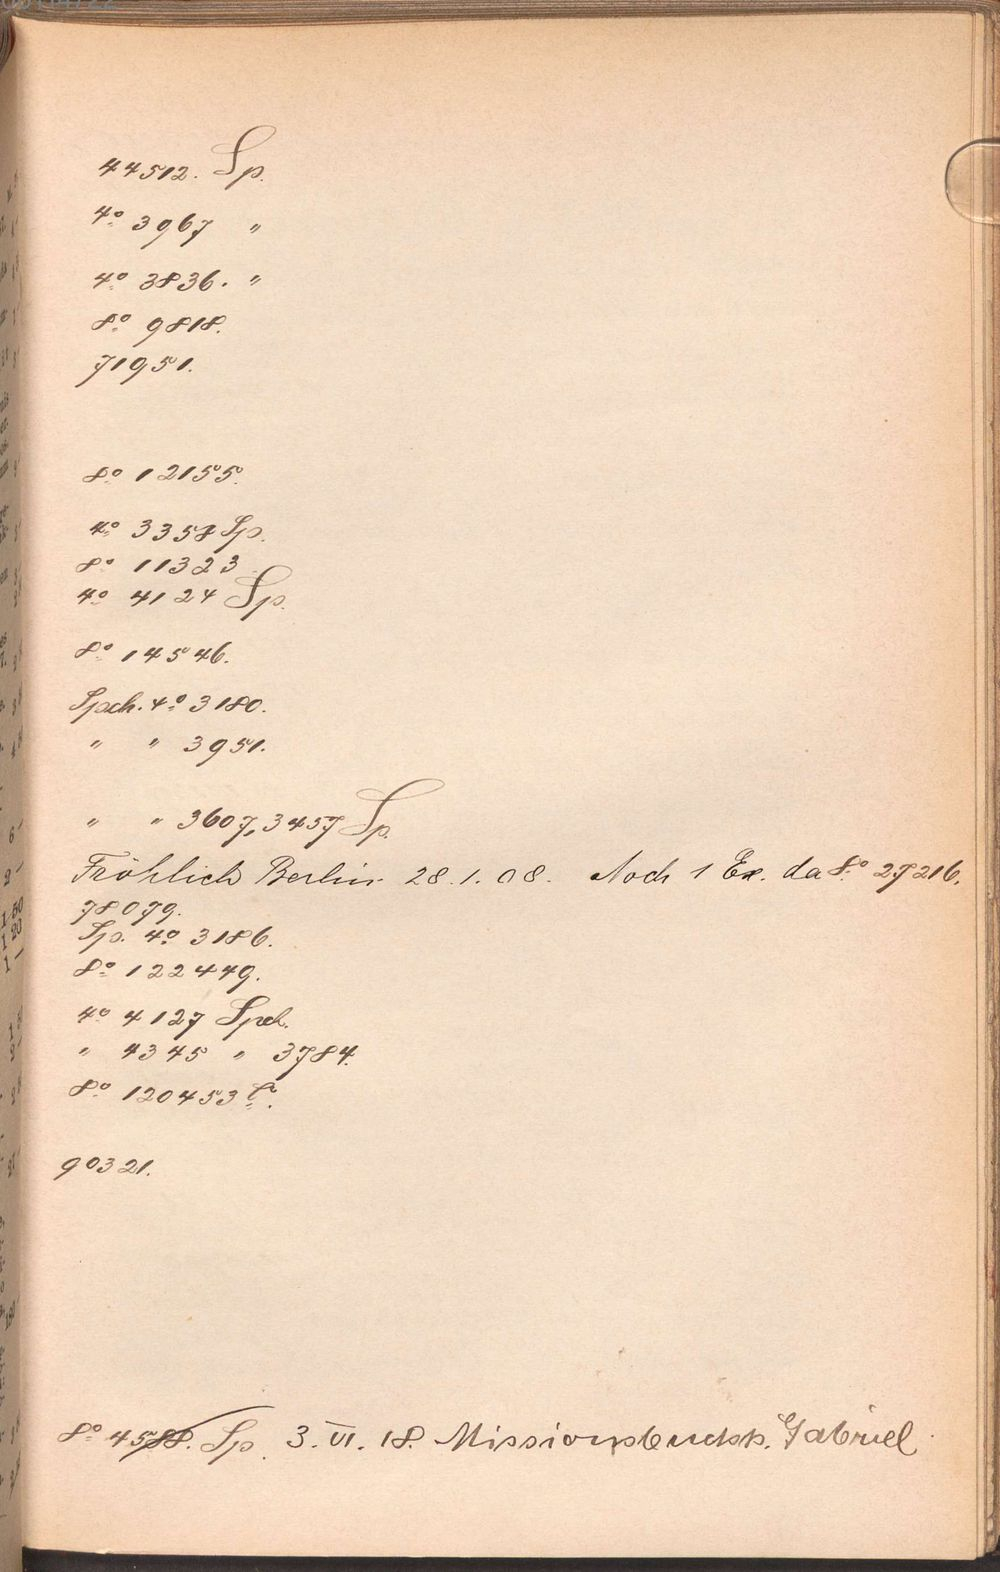 44512. Sp.
4º 3967 "
4º 3836. "
8º 9818.
71951.
8º 12155.
4º 3358 Sp.
8º 11323
4º 4124 Sp.
8º 14546.
Spch. 4º 3180.
" " 3951.
" " 3607, 3457 Sp.
Fröhlich Berlin 28.1.08. Noch 1 Ex. da 8º 27216.
78079.
Sp. 4º 3186.
8º 122449.
4º 4127 Spch.
" 4345 " 3784.
8º 120453
90321.
8º 4588. Sp. 3.VI.18. Missionsbuchh. Gabriel